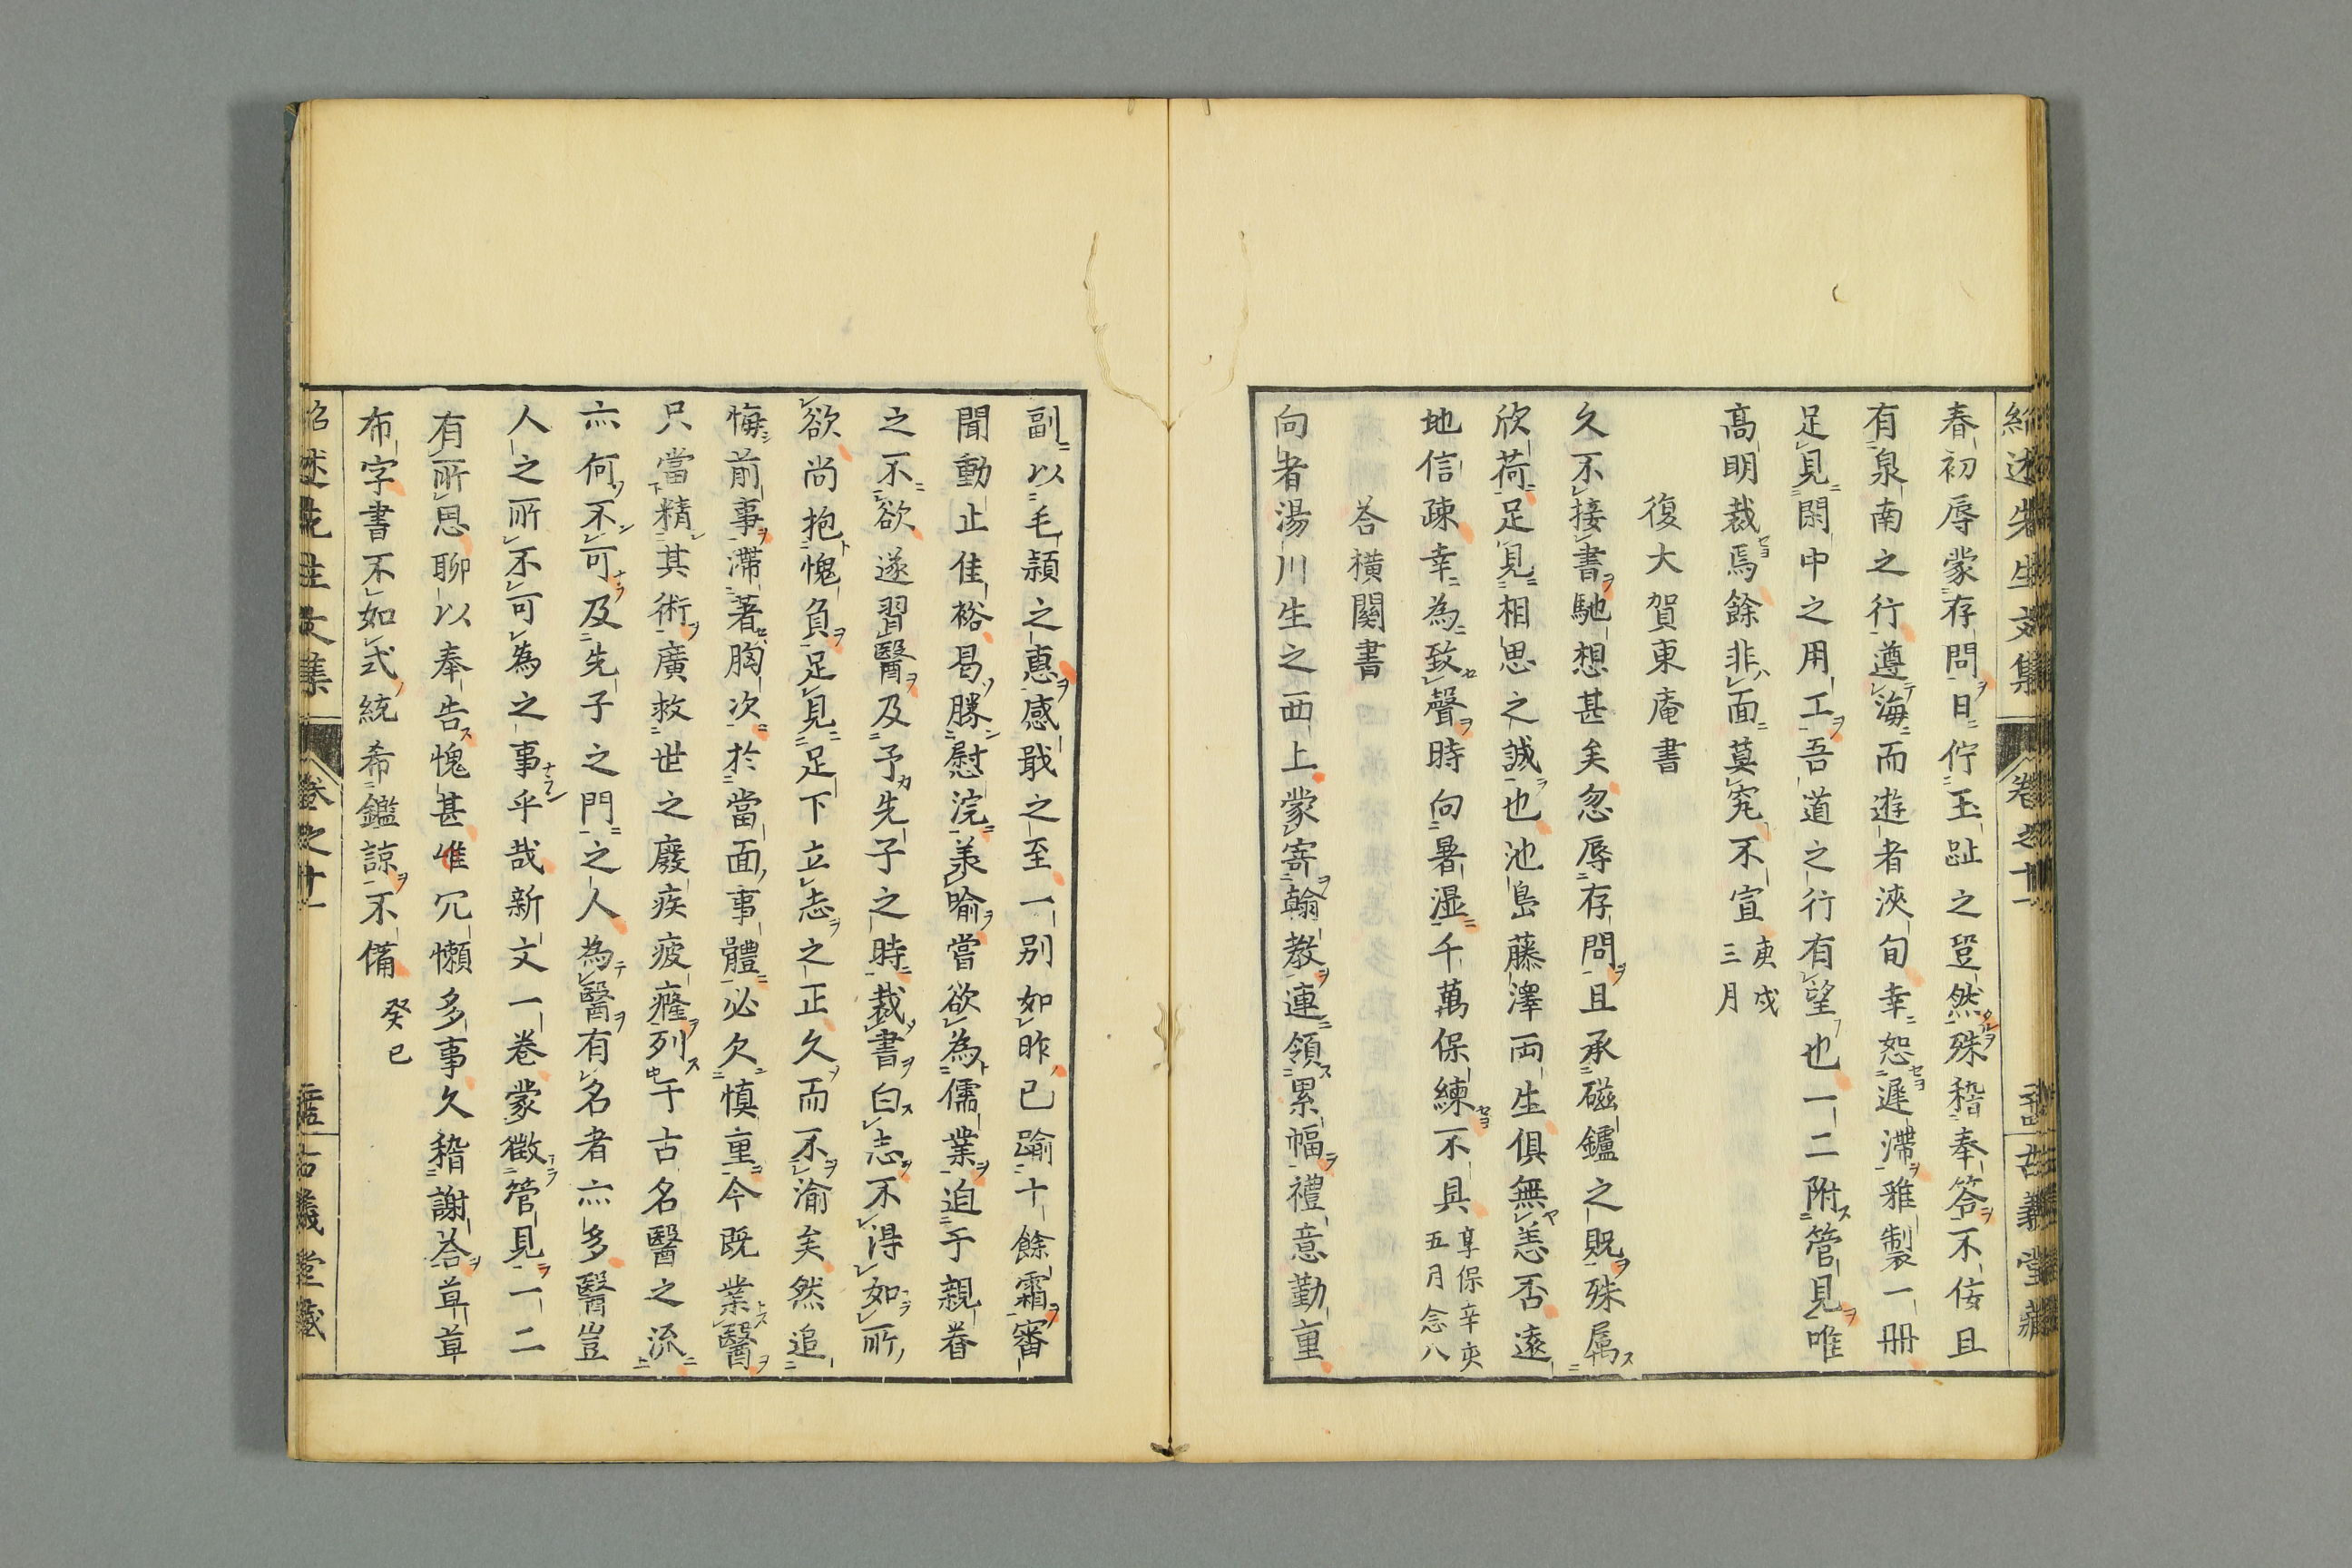 春初辱蒙存問日佇玉趾之跫然殊稽奉答不佞且
有泉南之行遵海而遊者浹旬幸恕遲滯雅製一冊
足見閑中之用工吾道之行有望也一二附管見唯
高明裁焉餘非面莫究不宣 庚戌三月
復大賀東庵書
久不接書馳想甚矣忽辱存問且承磁鑪之貺殊属
欣荷足見相思之誠也池島藤澤両生俱無恙否遠
地信疎幸為致聲時向暑湿千萬保練不具 享保辛亥五月念八
荅橫關書
向者湯川生之西上蒙寄翰教連領累幅禮意勤重
副以毛穎之惠感戢之至一別如昨已踰十餘霜審
聞動止佳裕曷勝慰浣羕喻嘗欲為儒業迫于親眷
之不欲遂習醫及予先子之時裁書白志不得如所
欲尚抱愧負足見足下立志之正久而不渝矣然追
悔前事滯著胸次於當面事體必欠慎重今既業醫
只當精其術廣救世之廢疾疲癃列于古名醫之流
亦何不可及先子之門之人為醫有名者亦多醫豈
人之所不可為之事乎哉新文一卷蒙徵管見一二
有所思聊以奉告愧甚唯冗懶多事久稽謝荅草草
布字書不如式統希鑑諒不備 癸巳
紹述先生文集 卷之十一 古義堂藏